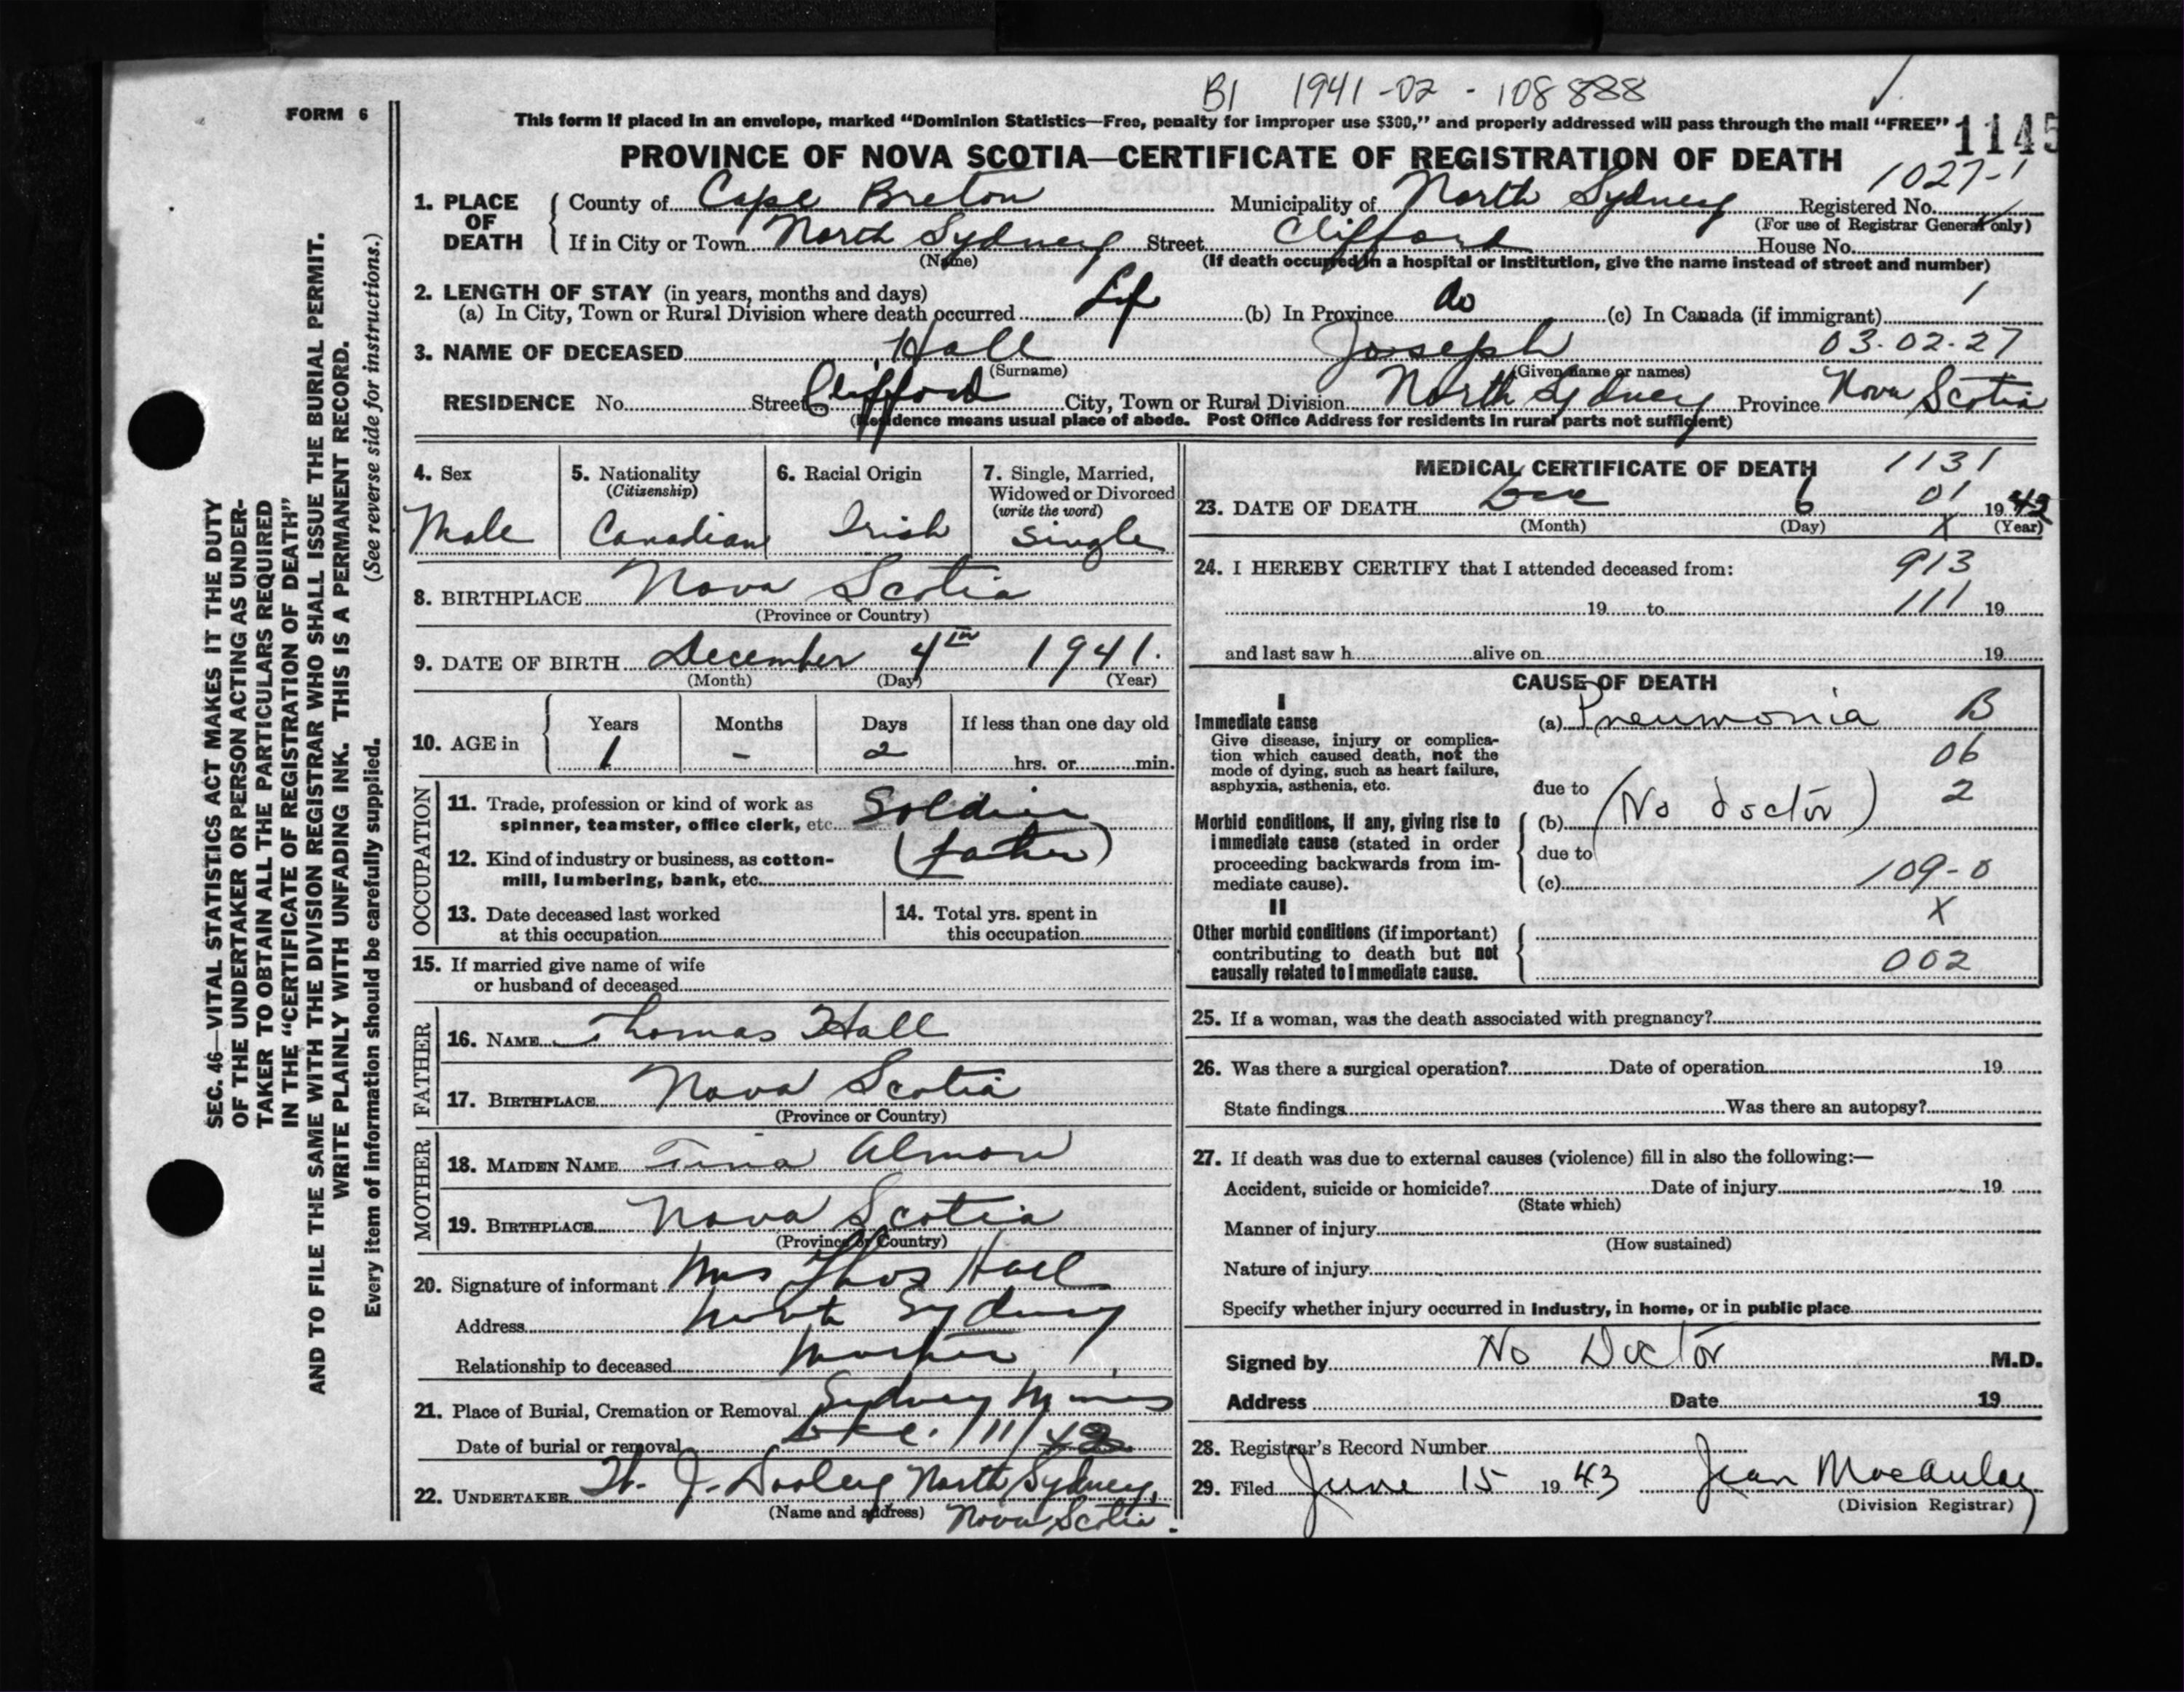 B1 1941-02-108888
FORM 6
This form if placed in an envelope, marked "Dominion Statistics—Free, penalty for improper use $300," and properly addressed will pass through the mail "FREE" 1145
PROVINCE OF NOVA SCOTIA—CERTIFICATE OF REGISTRATION OF DEATH
1027-1
1. PLACE OF DEATH { County of Cape Breton Municipality of North Sydney Registered No.
(For use of Registrar General only)
If in City or Town North Sydney Street Clifford House No.
(Name) (If death occurred in a hospital or institution, give the name instead of street and number)
2. LENGTH OF STAY (in years, months and days)
(a) In City, Town or Rural Division where death occurred Life (b) In Province do (c) In Canada (if immigrant) 1
3. NAME OF DECEASED Hall Joseph 03-02-27
(Surname) (Given name or names)
RESIDENCE No. Street Clifford City, Town or Rural Division North Sydney Province Nova Scotia
(Residence means usual place of abode. Post Office Address for residents in rural parts not sufficient)
SEC. 46—VITAL STATISTICS ACT MAKES IT THE DUTY
OF THE UNDERTAKER OR PERSON ACTING AS UNDER-
TAKER TO OBTAIN ALL THE PARTICULARS REQUIRED
IN THE "CERTIFICATE OF REGISTRATION OF DEATH"
AND TO FILE THE SAME WITH THE DIVISION REGISTRAR WHO SHALL ISSUE THE BURIAL PERMIT.
WRITE PLAINLY WITH UNFADING INK. THIS IS A PERMANENT RECORD.
Every item of information should be carefully supplied. (See reverse side for instructions.)
4. Sex
Male
5. Nationality
(Citizenship)
Canadian
6. Racial Origin
Irish
7. Single, Married,
Widowed or Divorced
(write the word)
Single
8. BIRTHPLACE Nova Scotia
(Province or Country)
9. DATE OF BIRTH December 4th 1941.
(Month) (Day) (Year)
10. AGE in { Years Months Days If less than one day old
1 - 2 hrs. or min.
OCCUPATION
11. Trade, profession or kind of work as
spinner, teamster, office clerk, etc. Soldier
12. Kind of industry or business, as cotton- (Father)
mill, lumbering, bank, etc.
13. Date deceased last worked
at this occupation
14. Total yrs. spent in
this occupation
15. If married give name of wife
or husband of deceased
FATHER
16. NAME Thomas Hall
17. BIRTHPLACE Nova Scotia
(Province or Country)
MOTHER
18. MAIDEN NAME Tina Almon
19. BIRTHPLACE Nova Scotia
(Province or Country)
20. Signature of informant Mrs Thos Hall
Address North Sydney
Relationship to deceased Mother
21. Place of Burial, Cremation or Removal Sydney Mines
Date of burial or removal Dec. 11/42
22. UNDERTAKER J. Dooley North Sydney,
(Name and address) Nova Scotia.
MEDICAL CERTIFICATE OF DEATH 1131
23. DATE OF DEATH Dec 6 01 1942
(Month) (Day) X (Year)
24. I HEREBY CERTIFY that I attended deceased from: 913
19 to 111 19
and last saw h alive on 19
CAUSE OF DEATH
I
Immediate cause (a) Pneumonia B
Give disease, injury or complica-
tion which caused death, not the 06
mode of dying, such as heart failure,
asphyxia, asthenia, etc. due to 2
Morbid conditions, if any, giving rise to (b) (No doctor)
immediate cause (stated in order due to
proceeding backwards from im-
mediate cause). (c) 109-0
II X
Other morbid conditions (if important)
contributing to death but not
causally related to immediate cause. 002
25. If a woman, was the death associated with pregnancy?
26. Was there a surgical operation? Date of operation 19
State findings Was there an autopsy?
27. If death was due to external causes (violence) fill in also the following:—
Accident, suicide or homicide? Date of injury 19
(State which)
Manner of injury
(How sustained)
Nature of injury
Specify whether injury occurred in industry, in home, or in public place
Signed by No Doctor M.D.
Address Date 19
28. Registrar's Record Number
29. Filed June 15 1943 Jean MacAulay
(Division Registrar)